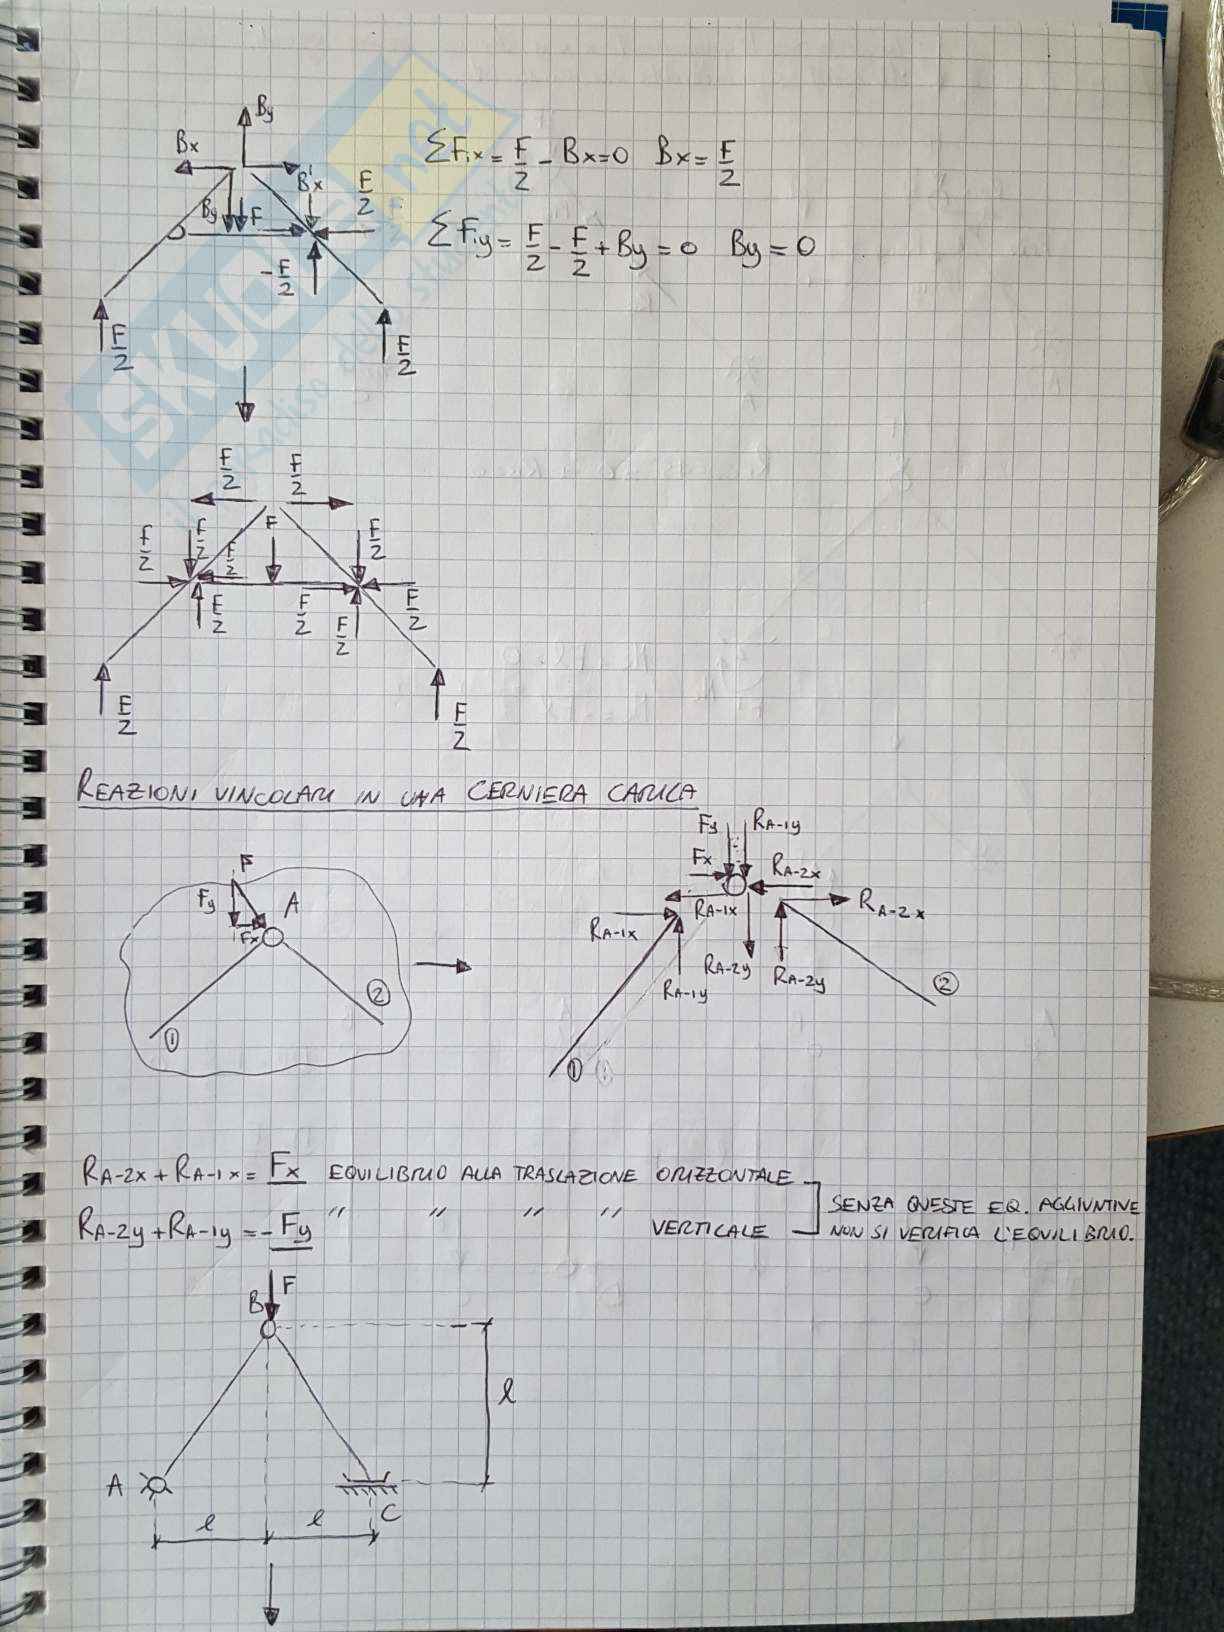 By
Bx
B'x
F/2
By
F
-F/2
F/2
F/2
ΣFix = F/2 - Bx = 0 Bx = F/2
ΣFiy = F/2 - F/2 + By = 0 By = 0
SKUOLA.net
F/2 F/2
F/2 F/2 F F/2
F/2
F/2 F/2 F/2 F/2
F/2 F/2
REAZIONI VINCOLARI IN UNA CERNIERA CARICA
F
Fy A
Fx
① ②
Fy RA-1y
Fx RA-2x
RA-1x RA-2x
RA-1x
RA-2y RA-2y
RA-1y
②
① ①
RA-2x + RA-1x = Fx EQUILIBRIO ALLA TRASLAZIONE ORIZZONTALE
RA-2y + RA-1y = -Fy " " " " VERTICALE
SENZA QUESTE EQ. AGGIUNTIVE
NON SI VERIFICA L'EQUILIBRIO.
F
B
l
A
C
l l